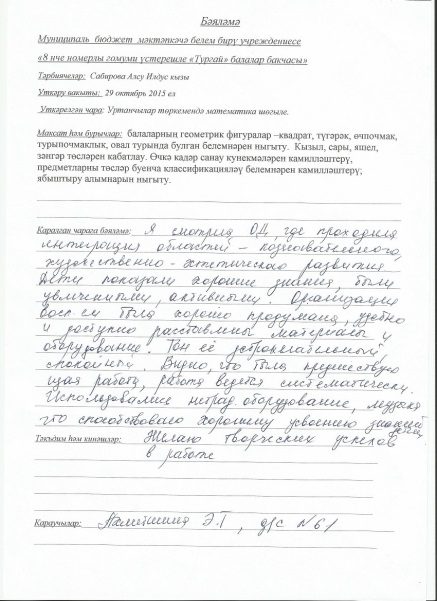 Бәяләмә
Муниципаль бюджет мәктәпкәчә белем бирү учреждениесе
«8 нче номерлы гомуми үстерешле «Тургай» балалар бакчасы»
Тәрбиячеләр: Сабирова Алсу Илдус кызы
Үткәрү вакыты: 29 октябрь 2015 ел
Үткәрелгән чара: Уртанчылар төркемендә математика шөгыле.
Максат һәм бурычлар: балаларның геометрик фигуралар –квадрат, түгәрәк, өчпочмак,
турыпочмаклык, овал турында булган белемнәрен ныгыту. Кызыл, сары, яшел,
зәңгәр төсләрен кабатлау. Өчкә кадәр санау күнекмәләрен камилләштерү,
предметларны төсләр буенча классификацияләү белемнәрен камилләштерү;
ябыштыру алымнарын ныгыту.
Каралган чарага бәяләмә: Я смотрела ОД, где проходила
интеграция областей – познавательного,
художественно-эстетического развития
Дети показали хорошие знания, были
увлеченными, активными. Организация
восп-ем была хорошо продумана, удобно
и доступно расставлены материалы и
оборудование. Тон её доброжелательный
спокойный. Видно, что была предшествую
щая работа, работа ведется систематически.
Использовались оборудование, музыка
что способствовало хорошему усвоению знаний
Тәкъдим һәм киңәшләр: Желаю творческих успехов
в работе
Караучылар: Ахметшина Э.Г, д/с №61